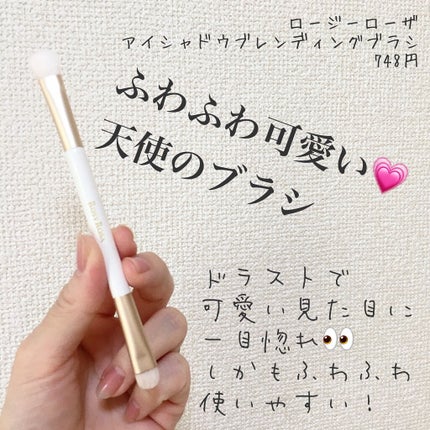 ロージーローザ
アイシャドウブレンディングブラシ
748円
ふわふわ可愛い💗
天使のブラシ
ドラストで
可愛い見た目に
一目惚れ👀
しかもふわふわ
使いやすい！